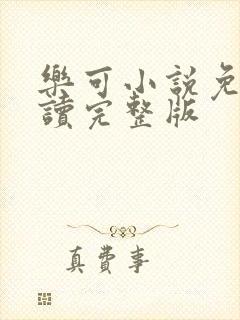 樂可小説免
讀完整版
真費事